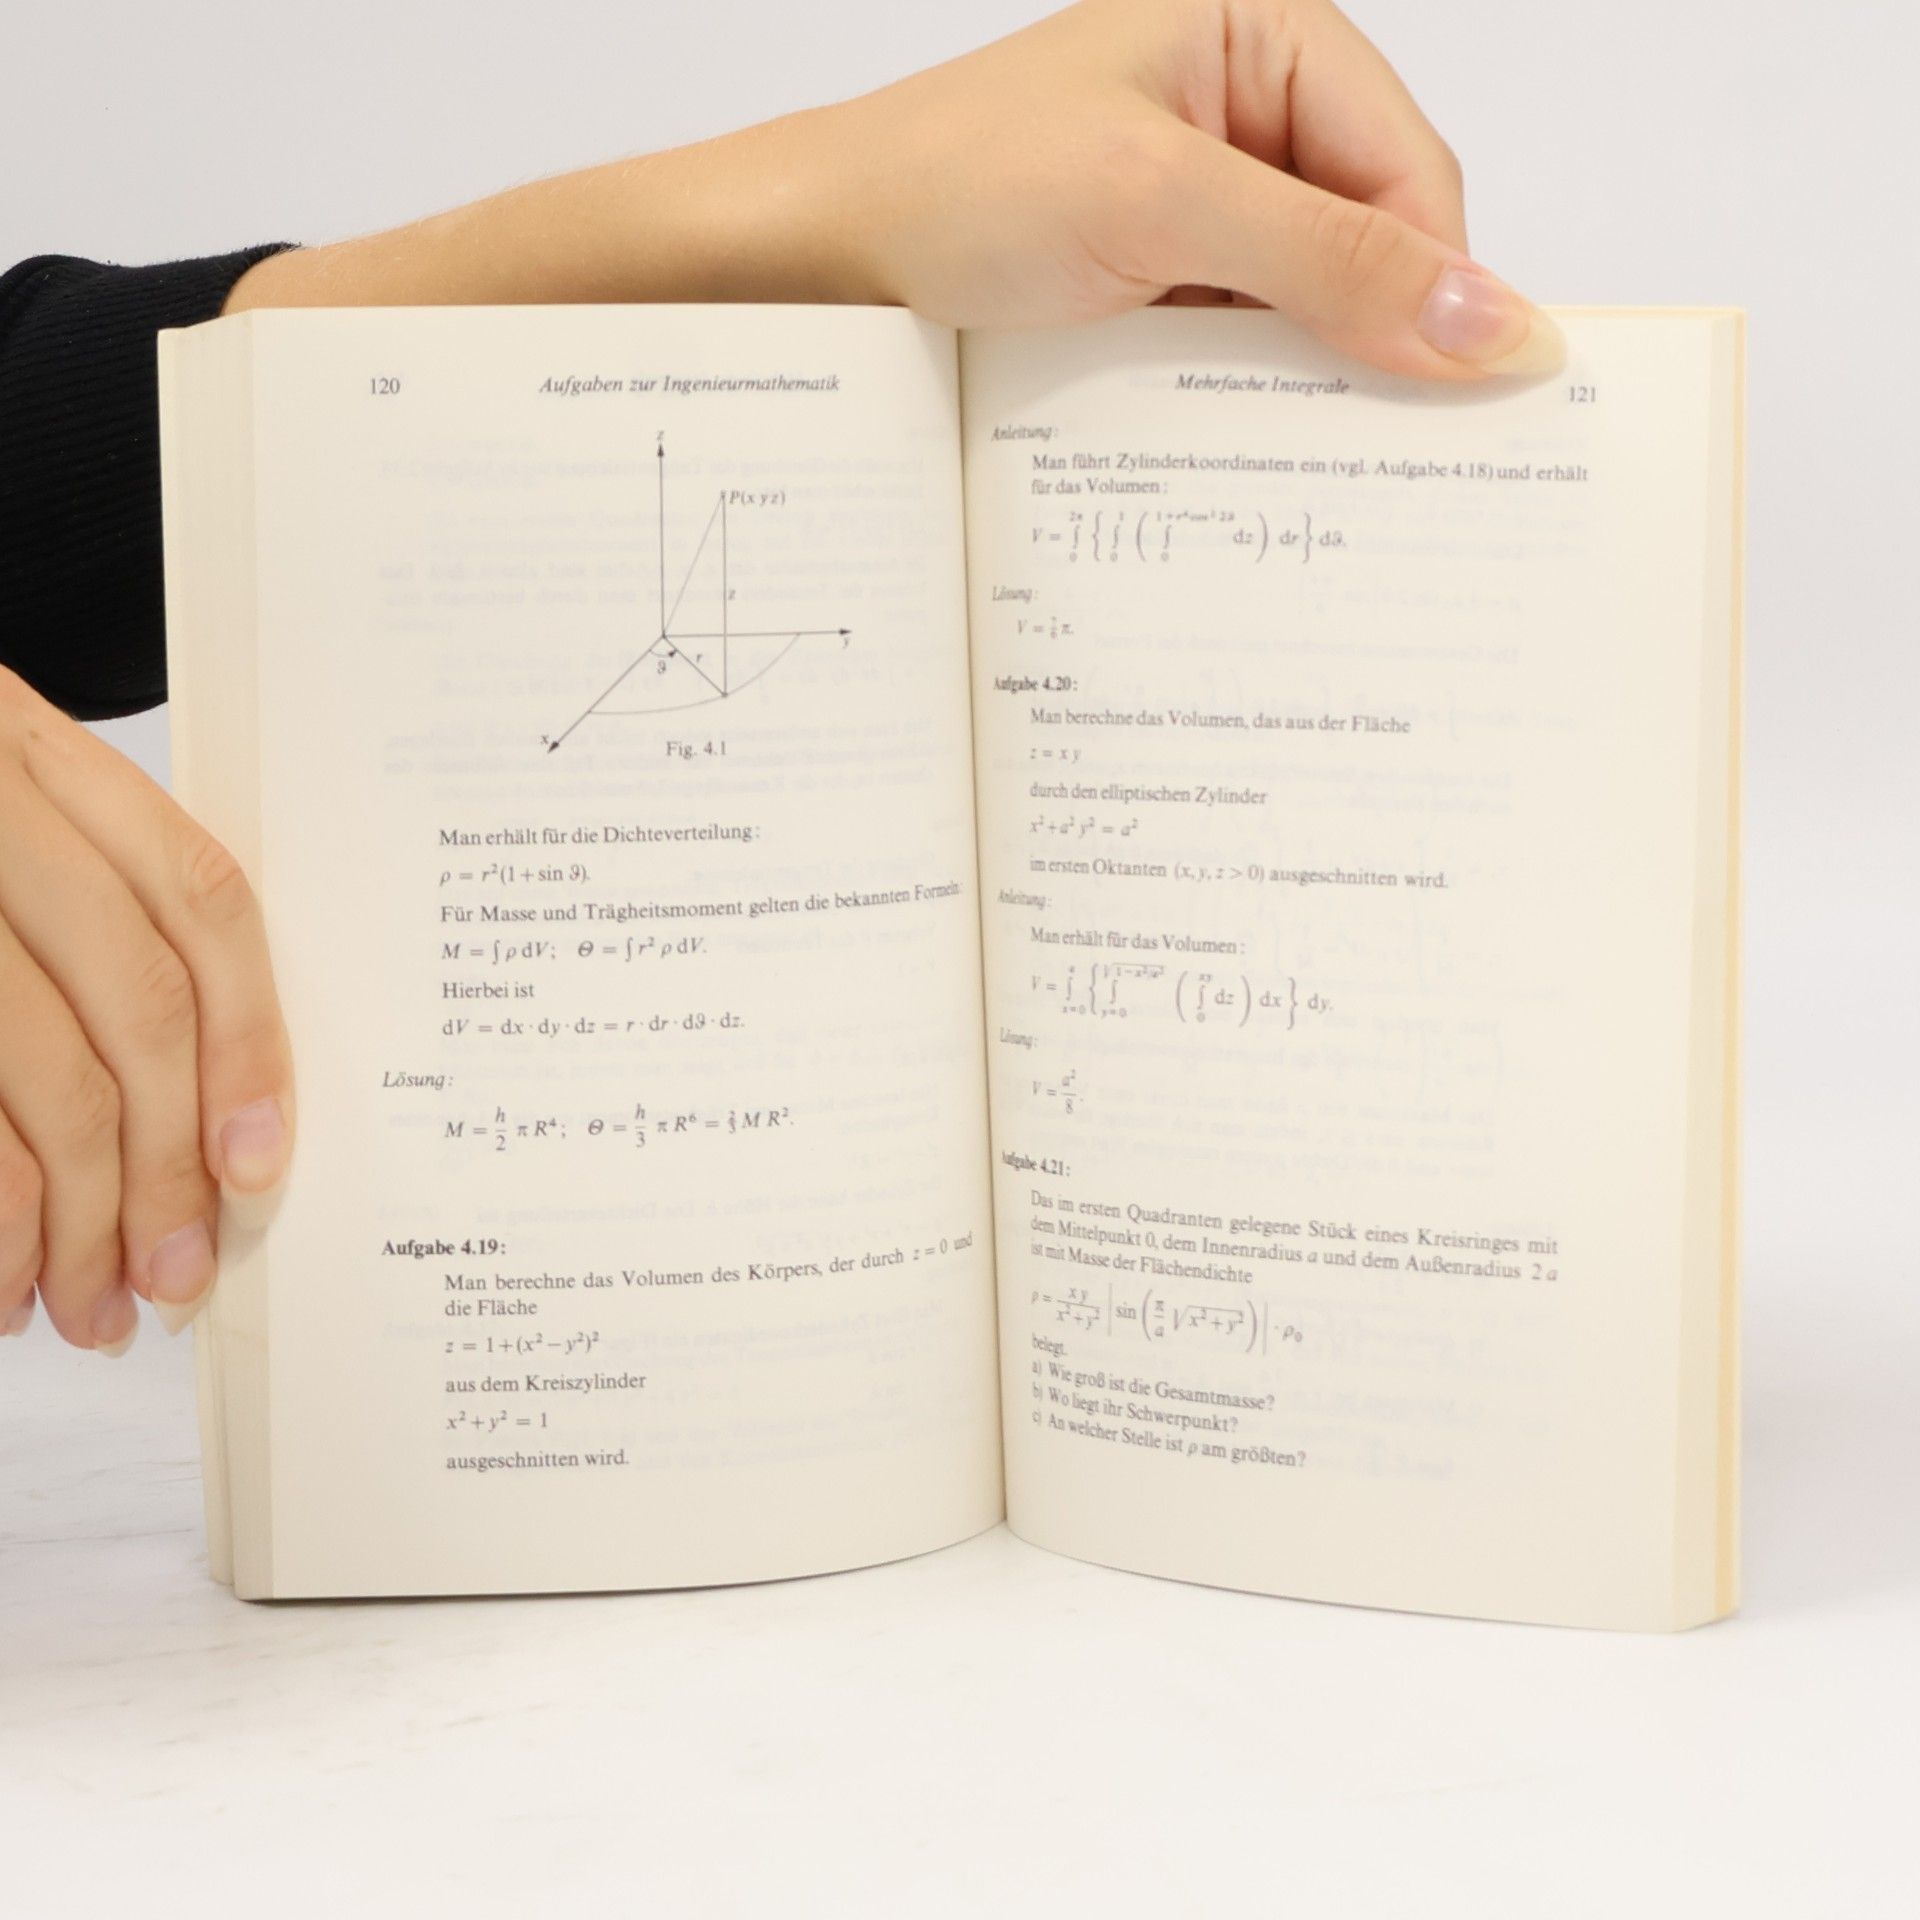 120 Aufgaben zur Ingenieurmathematik
z
P(x y z)
z
y
r
ϑ
x
Fig. 4.1
Man erhält für die Dichteverteilung:
ρ = r²(1 + sin ϑ).
Für Masse und Trägheitsmoment gelten die bekannten Formeln:
M = ∫ ρ dV; Θ = ∫ r² ρ dV.
Hierbei ist
dV = dx · dy · dz = r · dr · dϑ · dz.
Lösung:
M = h/2 π R⁴; Θ = h/3 π R⁶ = ⅔ M R².
Aufgabe 4.19:
Man berechne das Volumen des Körpers, der durch z = 0 und
die Fläche
z = 1 + (x² − y²)²
aus dem Kreiszylinder
x² + y² = 1
ausgeschnitten wird.
Mehrfache Integrale 121
Anleitung:
Man führt Zylinderkoordinaten ein (vgl. Aufgabe 4.18) und erhält
für das Volumen:
V = ∫₀^{2π} { ∫₀^{1} ( ∫₀^{1+r⁴cos² 2ϑ} dz ) dr } dϑ.
Lösung:
V = 7/6 π.
Aufgabe 4.20:
Man berechne das Volumen, das aus der Fläche
z = x y
durch den elliptischen Zylinder
x² + a² y² = a²
im ersten Oktanten (x, y, z > 0) ausgeschnitten wird.
Anleitung:
Man erhält für das Volumen:
V = ∫_{x=0}^{a} { ∫_{y=0}^{√(1−x²/a²)} ( ∫₀^{xy} dz ) dx } dy.
Lösung:
V = a²/8.
Aufgabe 4.21:
Das im ersten Quadranten gelegene Stück eines Kreisringes mit
dem Mittelpunkt 0, dem Innenradius a und dem Außenradius 2 a
ist mit Masse der Flächendichte
ρ = x y/(x² + y²) | sin ( π/a √(x² + y²) ) | · ρ₀
belegt.
a) Wie groß ist die Gesamtmasse?
b) Wo liegt ihr Schwerpunkt?
c) An welcher Stelle ist ρ am größten?